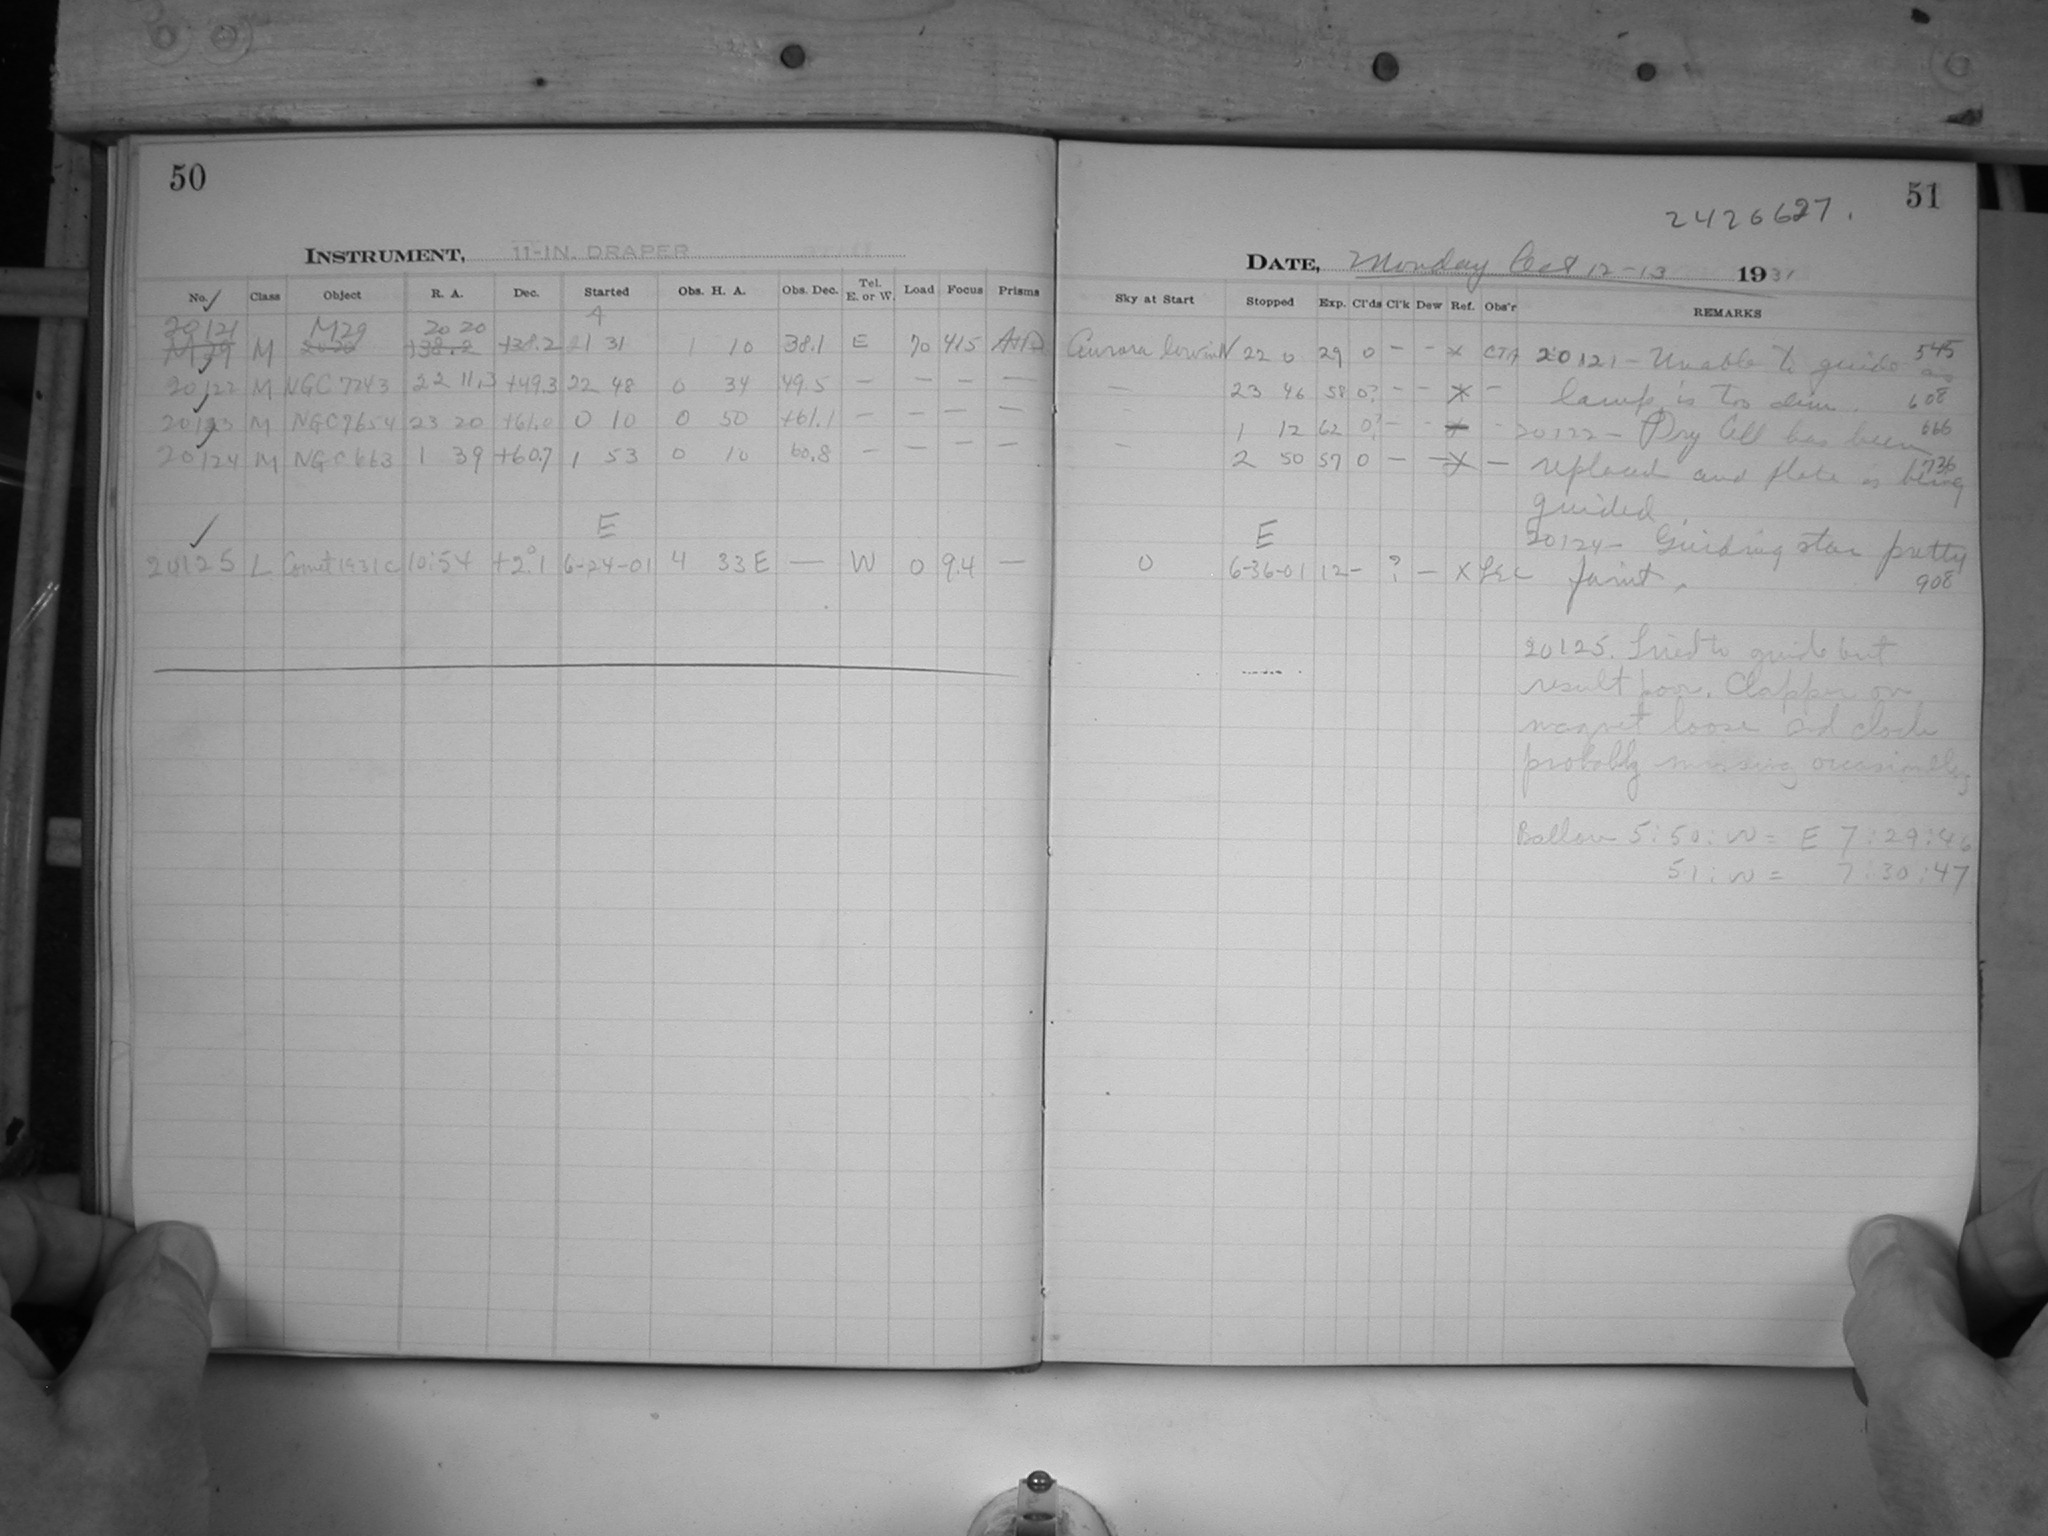 50
INSTRUMENT, 11-IN. DRAPER
No. Class Object R. A. Dec. Started Obs. H. A. Obs. Dec. Tel. E. or W. Load Focus Prisms
A
20121 M29 20 20
M29 M 138.2 +38.2 21 31 1 10 38.1 E 70 415
20122 M NGC 7243 22 11.3 +49.3 22 48 0 34 49.5 — — — —
20123 M NGC 7654 23 20 +61.0 0 10 0 50 +61.1 — — — —
20124 M NGC 663 1 39 +60.7 1 53 0 10 60.8 — — — —
E
20125 L Comet 1931c 10:54 +2°.1 6-24-01 4 33 E — W 0 9.4 —
51
2426627.
DATE, Monday Oct 12-13 1931
Sky at Start Stopped Exp. Cl'ds Cl'k Dew Ref. Obs'r REMARKS
Aurora low in N 22 0 29 0 — — x 20121 — Unable to guide as 545
— 23 46 58 0? — — x — lamp is too dim. 608
1 12 62 0? — — x — 20122 — Dry Cell has been 666
— 2 50 57 0 — — x — replaced and plate is being 736
guided.
E 20124 — Guiding star pretty
0 6-36-01 12- ? — x faint. 908
20125. Tried to guide but
result poor. Clapper on
magnet loose and clock
probably missing occasionally
5:50:W = E 7:29:46
51:W = 7:30:47